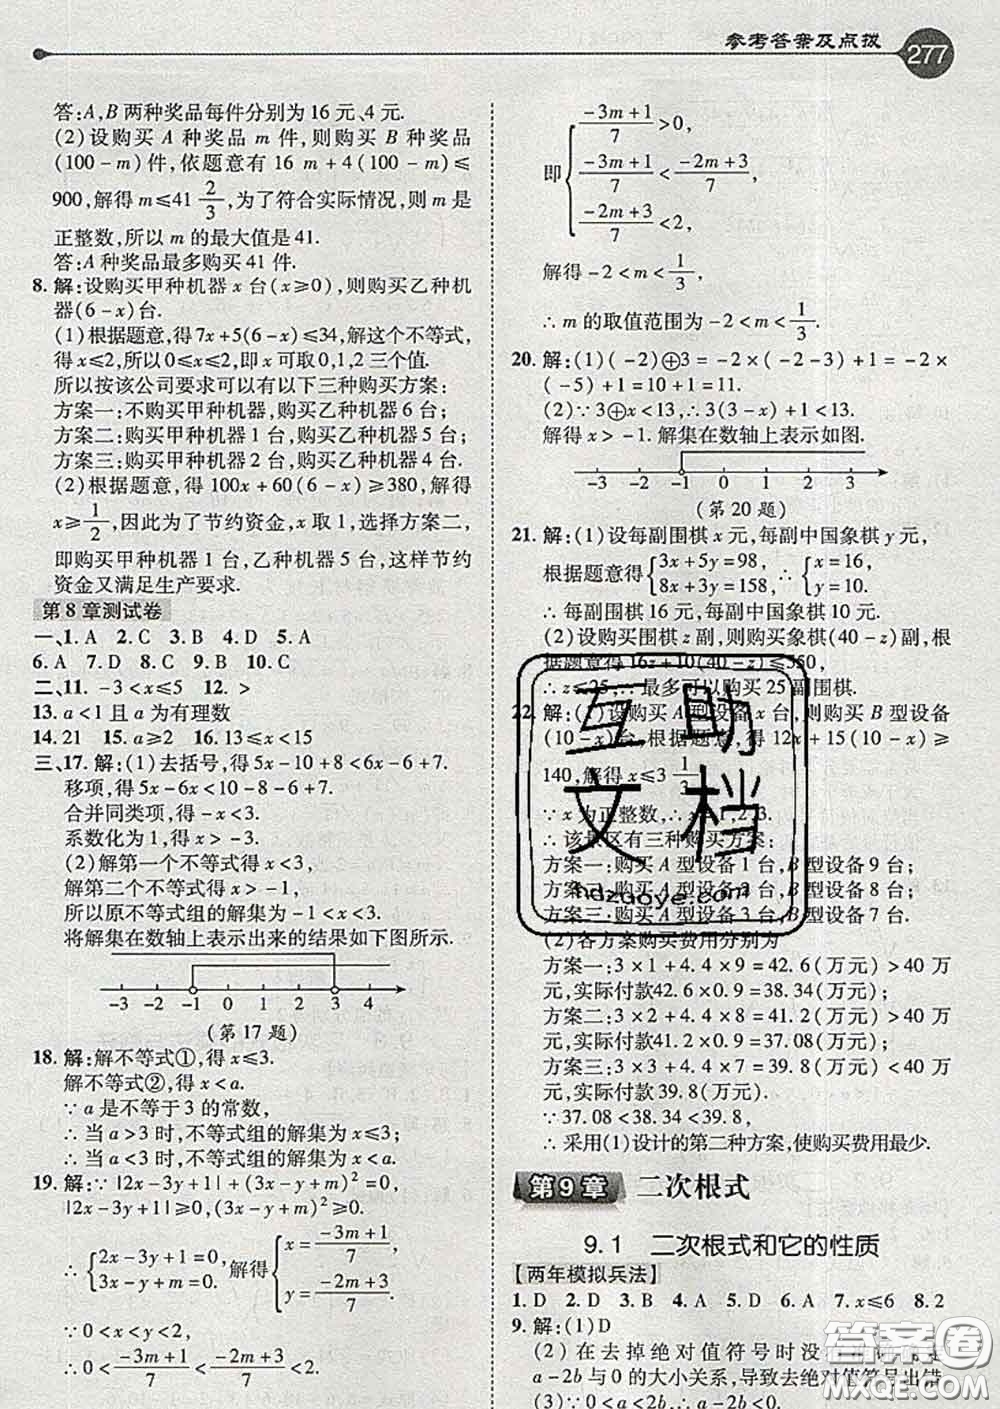 参考答案及点拨
277
答:A,B两种奖品每件分别为16元、4元.
(2)设购买A种奖品m件,则购买B种奖品
(100-m)件,依题意有16m+4(100-m)≤
900,解得m≤41 2/3,为了符合实际情况,则m是
正整数,所以m的最大值是41.
答:A种奖品最多购买41件.
8. 解:设购买甲种机器x台(x≥0),则购买乙种机
器(6-x)台.
(1)根据题意,得7x+5(6-x)≤34,解这个不等式,
得x≤2,所以0≤x≤2,即x可取0,1,2三个值.
所以按该公司要求可以有以下三种购买方案:
方案一:不购买甲种机器,购买乙种机器6台;
方案二:购买甲种机器1台,购买乙种机器5台;
方案三:购买甲种机器2台,购买乙种机器4台.
(2)根据题意,得100x+60(6-x)≥380,解得
x≥1/2,因此为了节约资金,x取1,选择方案二,
即购买甲种机器1台,乙种机器5台,这样节约
资金又满足生产要求.
第8章测试卷
一、1. A 2. C 3. B 4. D 5. A
6. A 7. D 8. C 9. B 10. C
二、11. -3<x≤5 12. >
13. a<1且a为有理数
14. 21 15. a≥2 16. 13≤x<15
三、17. 解:(1)去括号,得5x-10+8<6x-6+7.
移项,得5x-6x<10-8-6+7.
合并同类项,得-x<3.
系数化为1,得x>-3.
(2)解第一个不等式得x<3,
解第二个不等式得x>-1.
所以原不等式组的解集为-1<x<3.
将解集在数轴上表示出来的结果如下图所示.
-3 -2 -1 0 1 2 3 4
(第17题)
18. 解:解不等式①,得x≤3.
解不等式②,得x<a.
∵a是不等于3的常数,
∴当a>3时,不等式组的解集为x≤3;
∴当a<3时,不等式组的解集为x<a.
19. 解:∵|2x-3y+1|≥0,(3x-y+m)²≥0,
|2x-3y+1|+(3x-y+m)²=0,
∴{2x-3y+1=0, 3x-y+m=0. 解得{x=(-3m+1)/7, y=(-2m+3)/7.
∵0<x<y<2,
∴0<(-3m+1)/7<(-2m+3)/7<2,
即{(-3m+1)/7>0, (-3m+1)/7<(-2m+3)/7, (-2m+3)/7<2,
解得-2<m<1/3,
∴m的取值范围为-2<m<1/3.
20. 解:(1)(-2)⊕3=-2×(-2-3)+1=-2×
(-5)+1=10+1=11.
(2)∵3⊕x<13,∴3(3-x)+1<13.
解得x>-1. 解集在数轴上表示如图.
-3 -2 -1 0 1 2 3
(第20题)
21. 解:(1)设每副围棋x元,每副中国象棋y元,
根据题意得{3x+5y=98, 8x+3y=158, ∴{x=16, y=10.
∴每副围棋16元,每副中国象棋10元.
(2)设购买围棋z副,则购买象棋(40-z)副,根
据题意得16z+10(40-z)≤550,
∴z≤25,∴最多可以购买25副围棋.
22. 解:(1)设购买A型设备x台,则购买B型设备
(10-x)台,根据题意,得12x+15(10-x)≥
140,解得x≤3 1/3.
∵x为正整数,∴x=1,2,3.
∴该景区有三种购买方案:
方案一:购买A型设备1台,B型设备9台;
方案二:购买A型设备2台,B型设备8台;
方案三:购买A型设备3台,B型设备7台.
(2)各方案购买费用分别为
方案一:3×1+4.4×9=42.6(万元)>40万
元,实际付款42.6×0.9=38.34(万元);
方案二:3×2+4.4×8=41.2(万元)>40万
元,实际付款41.2×0.9=37.08(万元);
方案三:3×3+4.4×7=39.8(万元)<40万
元,实际付款39.8(万元);
∵37.08<38.34<39.8,
∴采用(1)设计的第二种方案,使购买费用最少.
第9章 二次根式
9.1 二次根式和它的性质
【两年模拟兵法】
1. D 2. D 3. B 4. A 5. D 6. A 7. x≤6 8. 2
9. 解:(1)D
(2)在去掉绝对值符号时没
a-2b与0的大小关系,导致去绝对值符号出错
(3)∵a<2b,∴a-2b<0.
互助文档
hdzuoye.com
答案圈
MXQE.COM